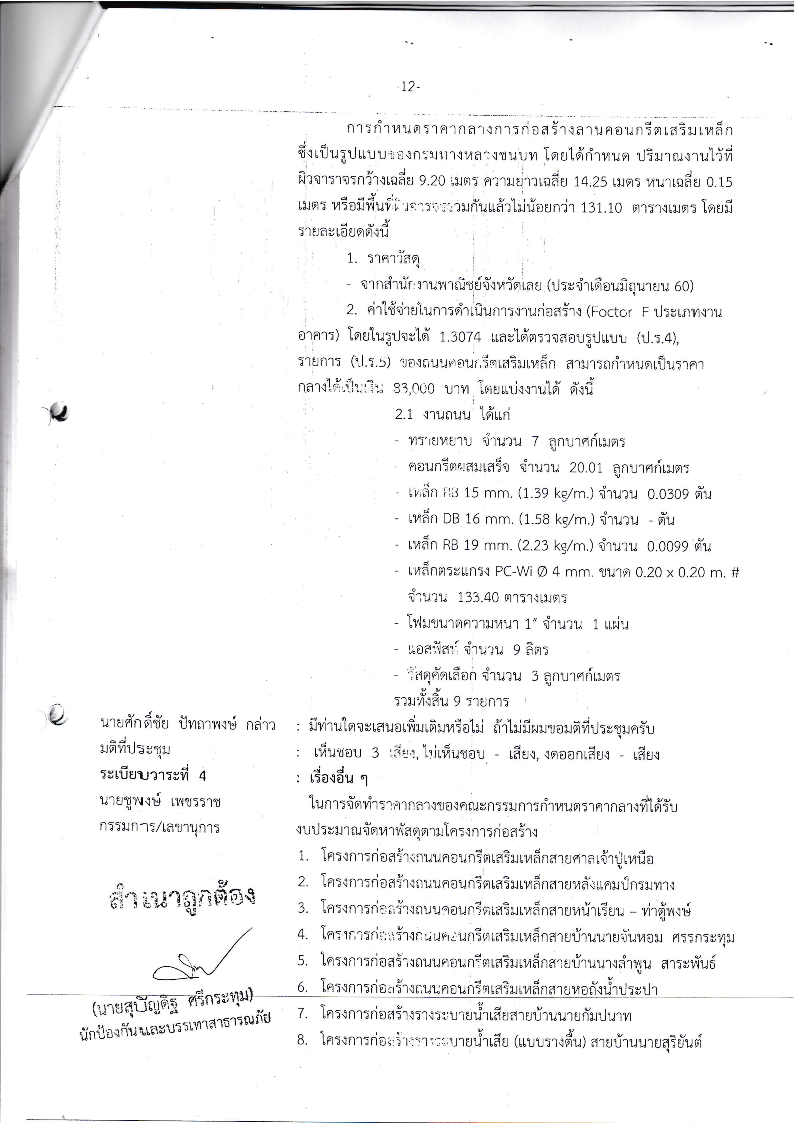 -12-
การกำหนดราคากลางการก่อสร้างลานคอนกรีตเสริมเหล็ก
ซึ่งเป็นรูปแบบของกรมทางหลวงชนบท โดยได้กำหนด ปริมาณงานไว้ที่
ผิวจาราจรกว้างเฉลี่ย 9.20 เมตร ความยาวเฉลี่ย 14.25 เมตร หนาเฉลี่ย 0.15
เมตร หรือมีพื้นที่ผิวจราจรรวมกันแล้วไม่น้อยกว่า 131.10 ตารางเมตร โดยมี
รายละเอียดดังนี้
1. ราคาวัสดุ
- จากสำนักงานพาณิชย์จังหวัดเลย (ประจำเดือนมิถุนายน 60)
2. ค่าใช้จ่ายในการดำเนินการงานก่อสร้าง (Foctor F ประเภทงาน
อาคาร) โดยในรูปจะได้ 1.3074 และได้ตรวจสอบรูปแบบ (ป.ร.4),
รายการ (ป.ร.5) ของถนนคอนกรีตเสริมเหล็ก สามารถกำหนดเป็นราคา
กลางได้เป็นเงิน 83,000 บาท โดยแบ่งงานได้ ดังนี้
2.1 งานถนน ได้แก่
- ทรายหยาบ จำนวน 7 ลูกบาศก์เมตร
คอนกรีตผสมเสร็จ จำนวน 20.01 ลูกบาศก์เมตร
- เหล็ก RB 15 mm. (1.39 kg/m.) จำนวน 0.0309 ตัน
- เหล็ก DB 16 mm. (1.58 kg/m.) จำนวน - ตัน
- เหล็ก RB 19 mm. (2.23 kg/m.) จำนวน 0.0099 ตัน
- เหล็กตระแกรง PC-Wi Ø 4 mm. ขนาด 0.20 x 0.20 m. #
จำนวน 133.40 ตารางเมตร
- โฟมขนาดความหนา 1" จำนวน 1 แผ่น
- แอสฟัสท์ จำนวน 9 ลิตร
- วัสดุคัดเลือก จำนวน 3 ลูกบาศก์เมตร
รวมทั้งสิ้น 9 รายการ
นายศักดิ์ชัย ปัทถาพงษ์ กล่าว : มีท่านใดจะเสนอเพิ่มเติมหรือไม่ ถ้าไม่มีผมขอมติที่ประชุมครับ
มติที่ประชุม : เห็นชอบ 3 เสียง, ไม่เห็นชอบ - เสียง, งดออกเสียง - เสียง
ระเบียบวาระที่ 4 : เรื่องอื่น ๆ
นายชูพงษ์ เพชรราช ในการจัดทำราคากลางของคณะกรรมการกำหนดราคากลางที่ได้รับ
กรรมการ/เลขานุการ งบประมาณจัดหาพัสดุตามโครงการก่อสร้าง
1. โครงการก่อสร้างถนนคอนกรีตเสริมเหล็กสายศาลเจ้าปู่เหนือ
2. โครงการก่อสร้างถนนคอนกรีตเสริมเหล็กสายหลังแคมป์กรมทาง
3. โครงการก่อสร้างถนนคอนกรีตเสริมเหล็กสายหน้าเรียน – ท่าตู้พงษ์
4. โครงการก่อสร้างถนนคอนกรีตเสริมเหล็กสายบ้านนายจันหอม ศรรกระทุม
5. โครงการก่อสร้างถนนคอนกรีตเสริมเหล็กสายบ้านนางลำพูน สาระพันธ์
6. โครงการก่อสร้างถนนคอนกรีตเสริมเหล็กสายหอถังน้ำประปา
7. โครงการก่อสร้างรางระบายน้ำเสียสายบ้านนายกัมปนาท
8. โครงการก่อสร้างรางระบายน้ำเสีย (แบบรางตื้น) สายบ้านนายสุริยันต์
สำเนาถูกต้อง
(นายสุบัญดิฐ ศรีกระทุม)
นักป้องกันและบรรเทาสาธารณภัย